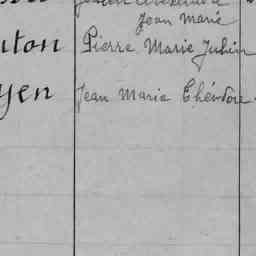 Jean Marie
uton Pierre Marie Julien
yen Jean Marie Théodore